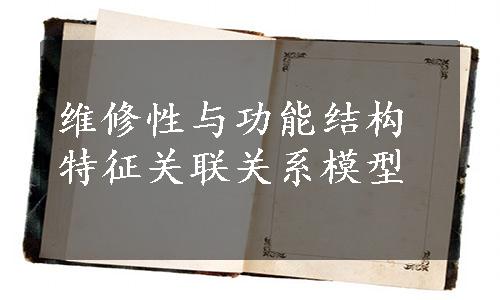 维修性与功能结构
特征关联关系模型